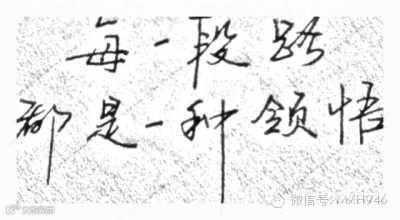 每一段路
都是一种领悟
微信号:MXH946